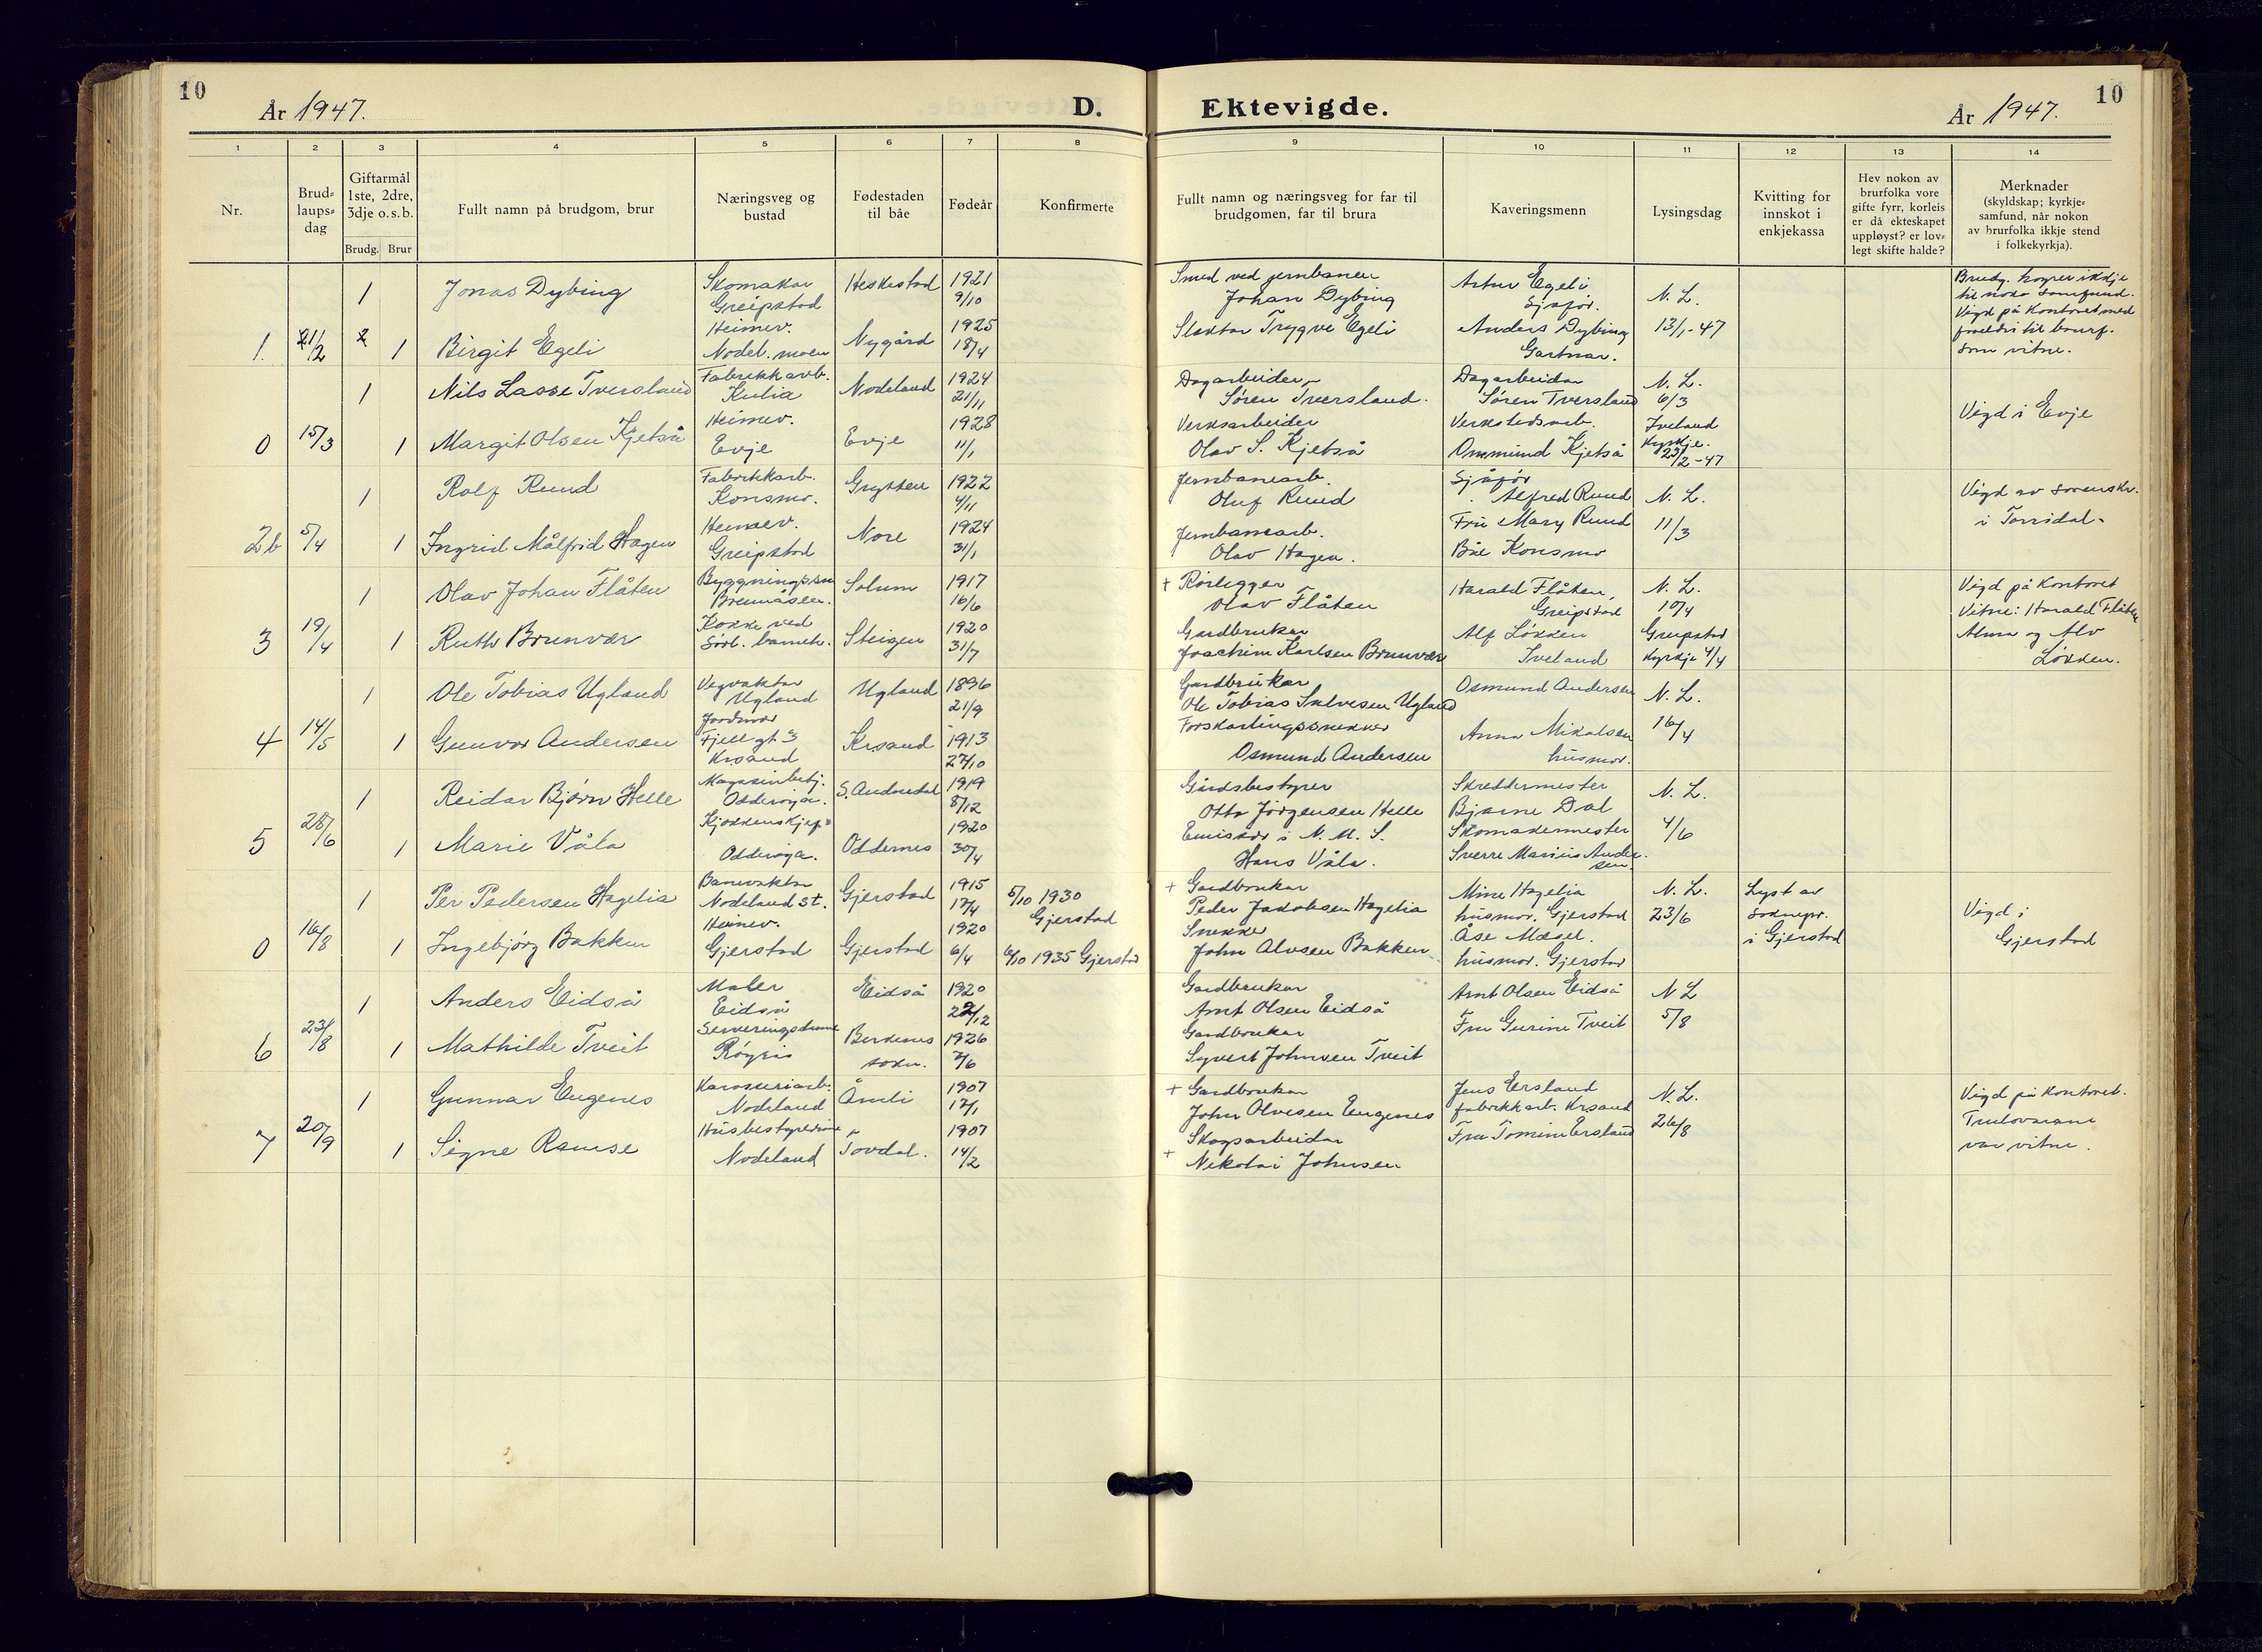 10
År 1947.
D.
Ektevigde.
År 1947.
10
1 2 3 4 5 6 7 8 9 10 11 12 13 14
Nr.
Brud-
laups-
dag
Giftarmål
1ste, 2dre,
3dje o.s.b.
Brudg. Brur
Fullt namn på brudgom, brur
Næringsveg og
bustad
Fødestaden
til båe
Fødeår
Konfirmerte
Fullt namn og næringsveg for far til
brudgomen, far til brura
Kaveringsmenn
Lysingsdag
Kvitting for
innskot i
enkjekassa
Hev nokon av
brurfolka vore
gifte fyrr, korleis
er då ekteskapet
uppløyst? er lov-
legt skifte halde?
Merknader
(skyldskap; kyrkje-
samfund, når nokon
av brurfolka ikkje stend
i folkekyrkja).
1. 21/2
1 Jonas Dybing
Skomakar
Greipstad
Heskestad
1921
9/10
Smed ved jernbanen
Johan Dybing
Artur Egeli
Sjåfør.
N. L.
13/1-47
1 Birgit Egeli
Heimev.
Nodel. moen
Nygård
1925
18/4
Slaktar Trygve Egeli
Anders Dybing
Gartnar.
Brudg. høyrer ikkje
til noko samfund.
Vigd på kontoret med
foreldri til brurf.
som vitne.
0 15/3
1 Nils Lasse Tversland
Fabrikkarb.
Kulia
Nodeland
1924
21/11
Dagarbeider
Søren Tversland.
Dagarbeidar
Søren Tversland
N. L.
6/3
1 Margit Olsen Kjetså
Heimev.
Evje
Evje
1928
11/1
Verksarbeider
Olav S. Kjetså
Verkstedsarb.
Ommund Kjetså
Iveland
Kyrkje.
23/2-47
Vigd i Evje
2b 5/4
1 Rolf Ruud
Fabrikkarb.
Konsmo.
Grytten
1922
4/11
Jernbanearb.
Oluf Ruud
Sjåfør
Alfred Ruud
N. L.
11/3
1 Ingrid Målfrid Hagen
Heimev.
Greipstad
Nore
1924
31/1
Jernbanearb.
Olav Hagen.
Fru Mary Ruud
Båe Konsmo
Vigd av sorenskr.
i Torridal.
3 19/4
1 Olav Johan Flåten
Brennåsen.
Solum
1917
16/6
+ Rørlegger
Olav Flåten
Harald Flåten,
Greipstad
N. L.
10/4
1 Ruth Brunvær
Kokke ved
Sørl. barneh.
Steigen
1920
31/7
Gardbrukar
Joachim Karlsen Brunvær
Alf Løkken
Iveland
Greipstad
Kyrkje 4/4
Vigd på kontoret
Vitne: Harald Flåten
Alma og Alv
Løkken.
4 14/5
1 Ole Tobias Ugland
Vegvaktar
Ugland
Ugland
1896
21/9
Gardbrukar
Ole Tobias Salvesen Ugland
Osmund Andersen
N. L.
16/4
1 Gunvor Andersen
Jordmor
Fjellgt 3
Krsand
Krsand
1913
27/10
Forskalingssnekker
Osmund Andersen
Anna Mikalsen
husmor.
5 28/6
1 Reidar Bjørn Helle
Magasinbetj.
Odderøya.
S. Audnedal
1919
8/12
Gårdsbestyrer
Otto Jørgensen Helle
Skreddermester
Bjarne Dal
N. L.
4/6
1 Marie Våla
Odderøya.
Oddernes
1920
30/4
Emissær i N. M. S.
Hans Våla.
Skomakermester
Sverre Marius Ander-
sen.
0 16/8
1 Per Pedersen Hagelia
Banevaktar
Nodeland st.
Gjerstad
1915
17/4
5/10 1930
Gjerstad
+ Gardbrukar
Peder Jakobsen Hagelia
Mine Hagelia
husmor. Gjerstad
N. L.
23/6
Lyst av
soknepr.
i Gjerstad
1 Ingebjørg Bakken
Heimev.
Gjerstad
Gjerstad
1920
6/4
6/10 1935 Gjerstad
Snekker
John Alvsen Bakken
Åse Mæsel.
husmor. Gjerstad
Vigd i
Gjerstad
6 23/8
1 Anders Eidså
Maler
Eidså
Eidså
1920
22/12
Gardbrukar
Arnt Olsen Eidså
Arnt Olsen Eidså
N L
5/8
1 Mathilde Tveit
Serveringsdame
Birkenes
sokn.
1926
7/6
Gardbrukar
Syvert Johnsen Tveit
Fru Gurine Tveit
7 20/9
1 Gunnar Eugenes
Karosseriarb.
Nodeland
Åmli
1907
17/1
+ Gardbrukar
John Olvesen Eugenes
Jens Ersland
fabrikkarb. Krsand
N. L.
26/8
1 Signe Ramse
Husbestyrerinne
Nodeland
Tovdal.
1907
14/2
Skogsarbeidar
+ Nikolai Johnsen
Fru Tomine Ersland
Vigd på kontoret.
Trulovarane
var vitne.